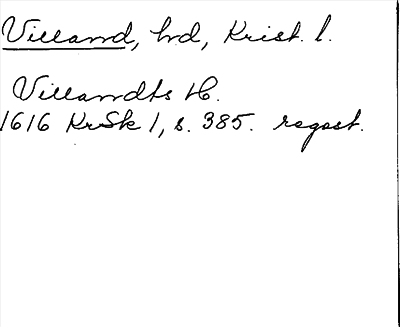 Villand, hrd, Krist. l.
Villandts H.
1616 KrSk 1, s. 385. regest.